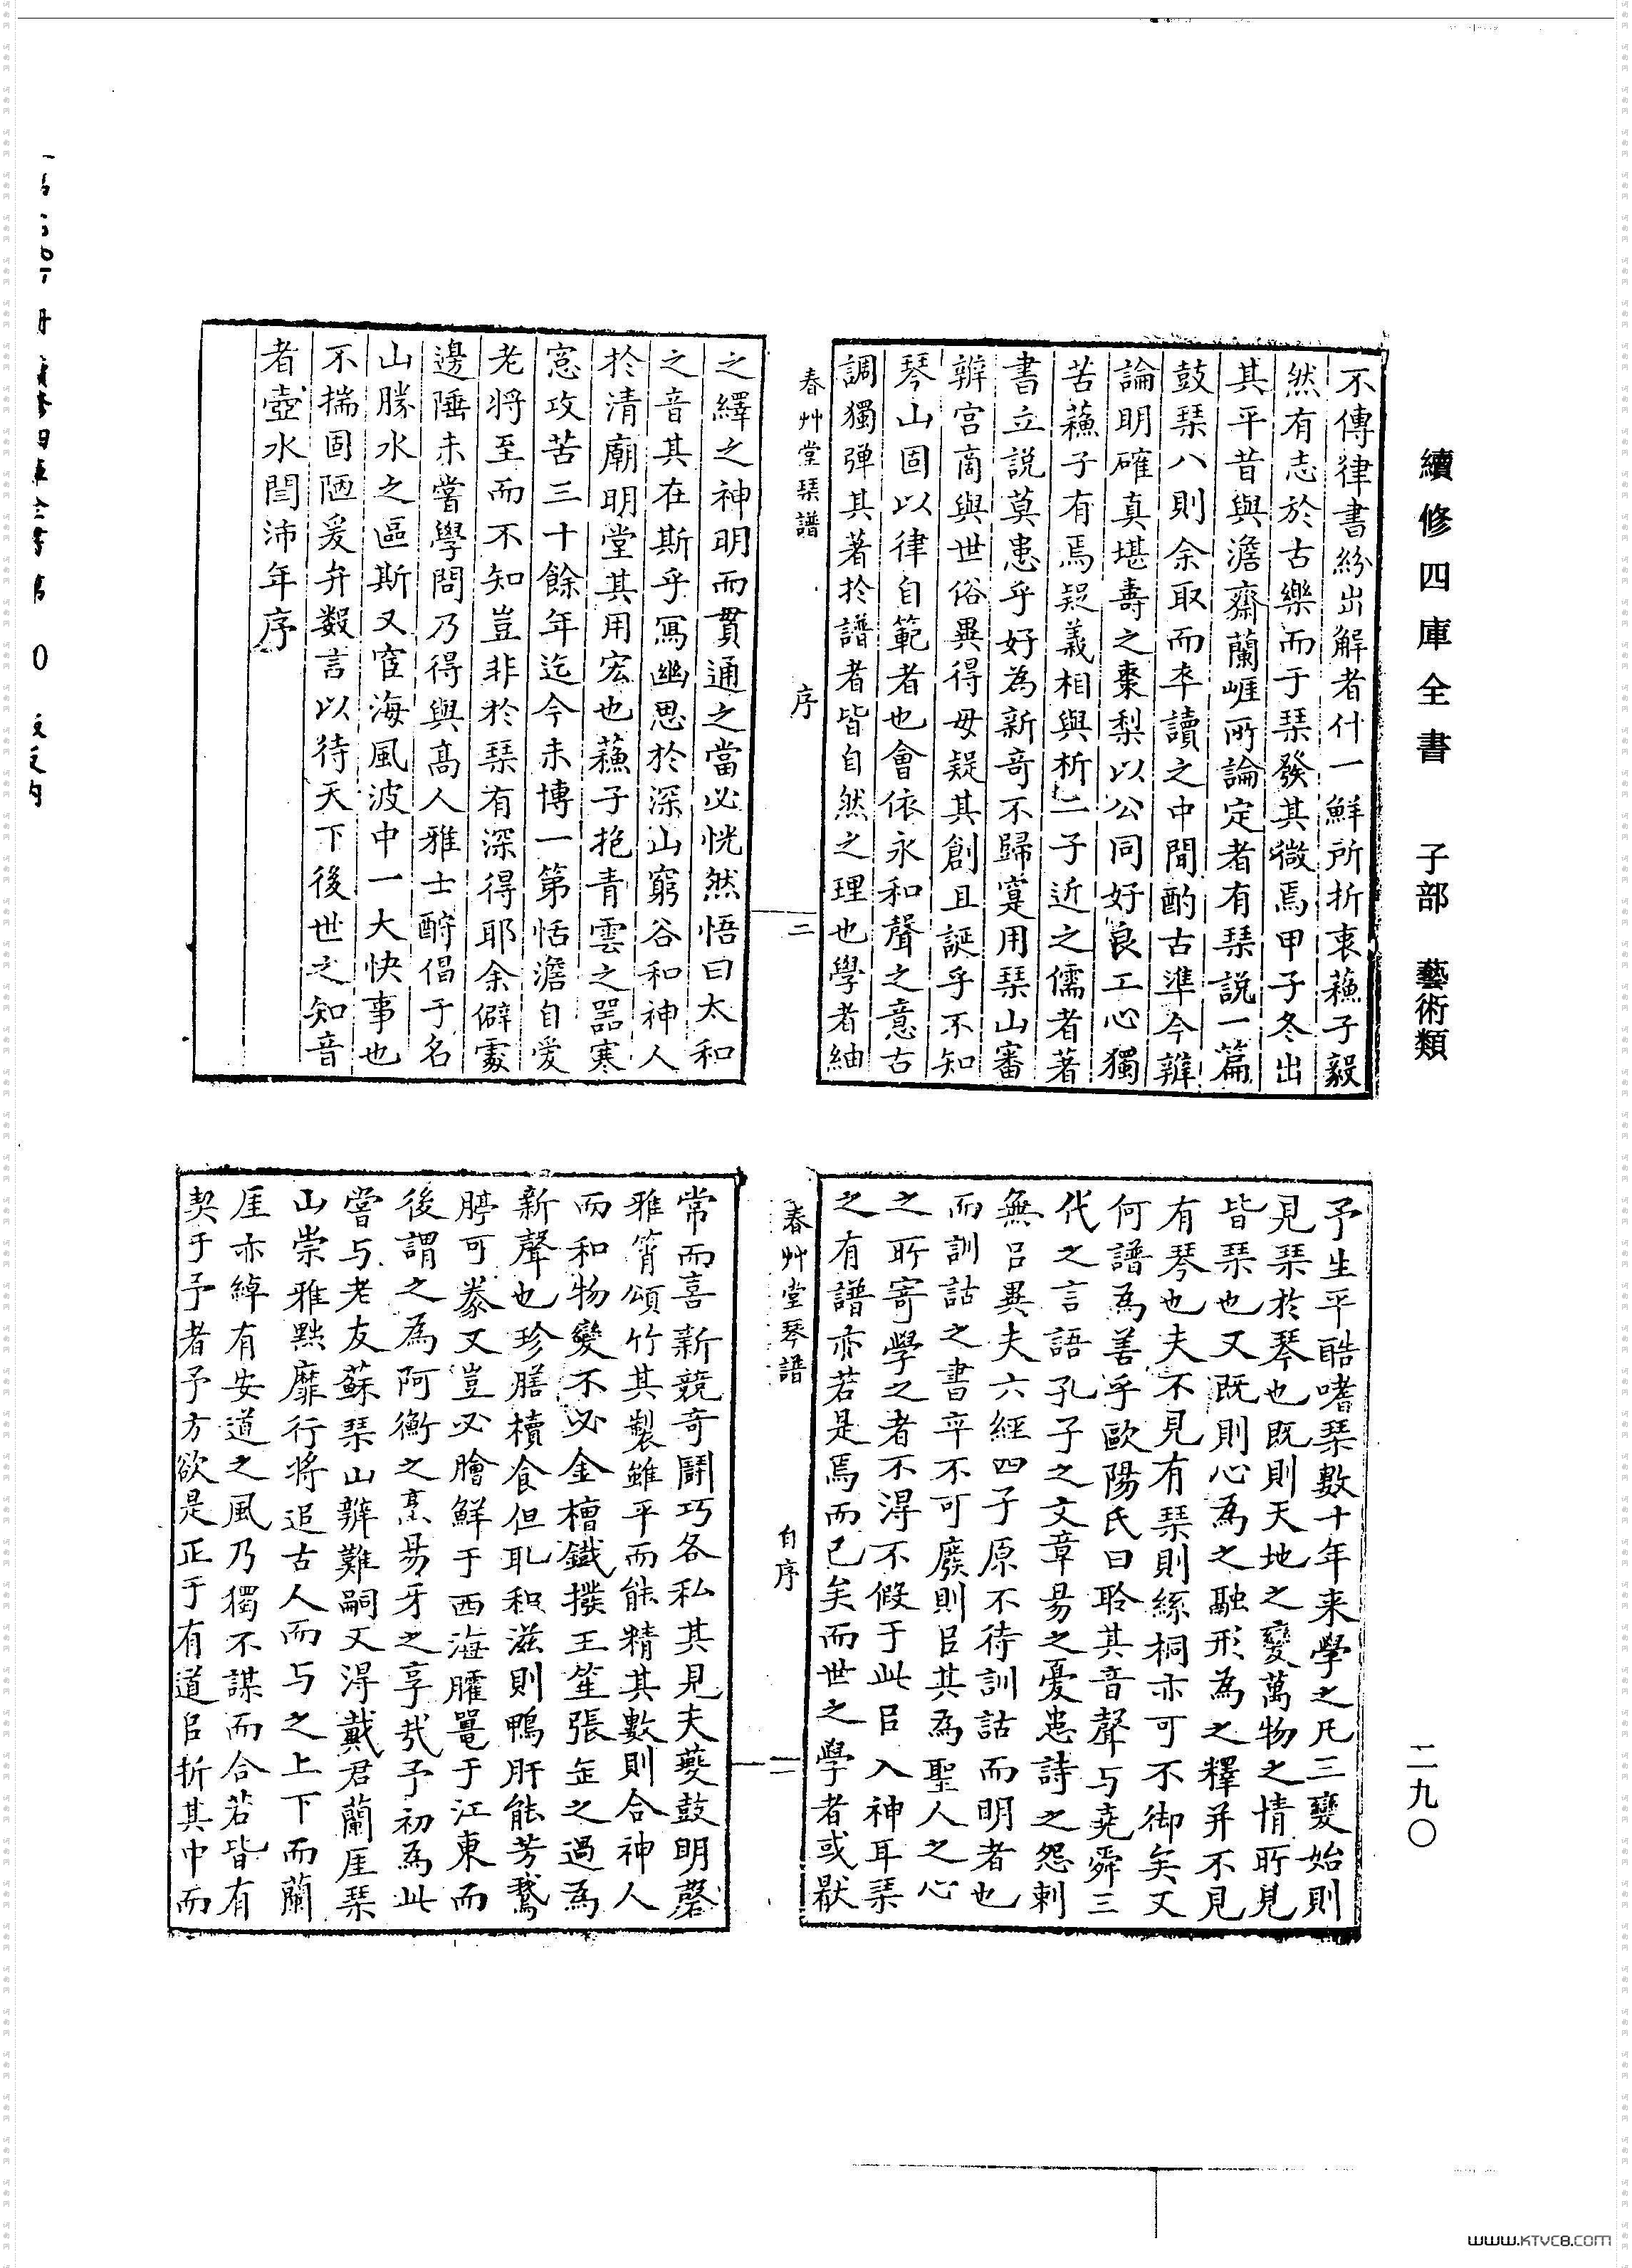 續修四庫全書 子部 藝術類
二九〇
不傳律書紛出解者什一鮮所折衷蘓子毅
然有志於古樂而于琹發其微焉甲子冬出
其平昔與澹齋蘭崕所論定者有琹説一篇
鼓琹八則余取而卒讀之中間酌古準今辧
論明確真堪壽之棗梨以公同好良工心獨
苦蘓子有焉疑義相與析二子近之儒者著
書立説莫患乎好為新竒不歸寔用琹山審
辧宫商與世俗異得毋疑其創且誕乎不知
琴山固以律自範者也會依永和聲之意古
調獨弹其著於譜者皆自然之理也學者紬
春艸堂琹譜 序 二
之繹之神明而貫通之當必恍然悟曰太和
之音其在斯乎寫幽思於深山窮谷和神人
於清廟明堂其用宏也蘓子抱青雲之噐寒
窓攻苦三十餘年迄今未博一第恬澹自愛
老将至而不知豈非於琹有深得耶余僻處
邊陲未嘗學問乃得與髙人雅士酧倡于名
山勝水之區斯又宦海風波中一大快事也
不揣固陋爰弁數言以待天下後世之知音
者壺水閆沛年序
予生平酷嗜琹數十年来學之凡三變始則
見琹於琴也既則天地之變萬物之情所見
皆琹也又既則心為之融形為之釋并不見
有琴也夫不見有琹則絲桐亦可不御矣又
何譜為善乎歐陽氏曰聆其音聲与堯舜三
代之言語孔子之文章易之憂患詩之怨刺
無㠯異夫六經四子原不待訓詁而明者也
而訓詁之書卒不可廢則㠯其為聖人之心
之所寄學之者不淂不假于此㠯入神耳琹
之有譜亦若是焉而已矣而世之學者或厭
春艸堂琴譜 自序 一
常而喜新競竒鬪巧各私其見夫夔鼓明磬
雅簫頌竹其製雖平而能精其數則合神人
而和物變不必金檀鐵撥王笙張缶之過為
新聲也珍膳櫝食但取和滋則鴨肝能芳鵞
脖可豢又豈必膾鮮于西海臛黿于江東而
後謂之為阿衡之烹易牙之享㦲予初為此
嘗与老友蘇琹山辧難嗣又淂戴君蘭厓琹
山崇雅黜靡行将追古人而与之上下而蘭
厓亦綽有安道之風乃獨不謀而合若皆有
契于予者予方欲是正于有道㠯折其中而
www.KTVC8.com